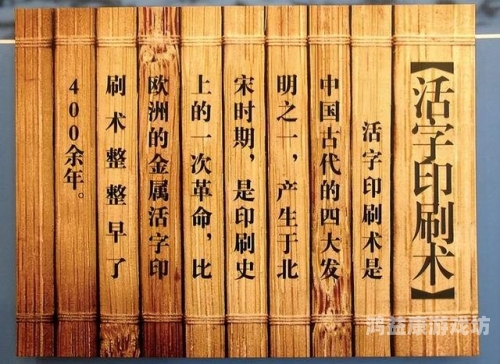 【活字印刷术】
活字印刷术是
中国古代的四大发
明之一，产生于北
宋时期，是印刷史
上的一次革命，比
欧洲的金属活字印
刷术整整早了
400余年。
鸿益康游戏坊